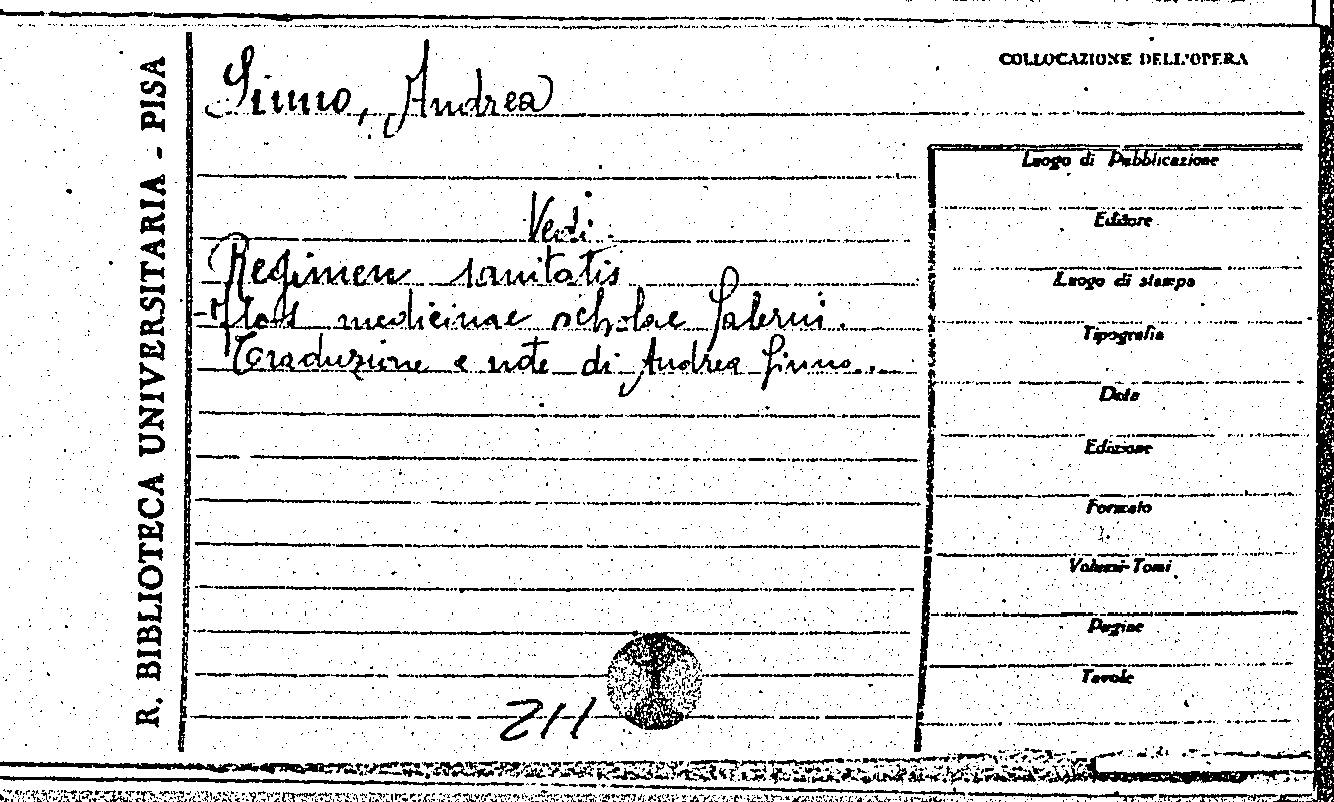 R. BIBLIOTECA UNIVERSITARIA - PISA
Sinno, Andrea
Vedi
Regimen sanitatis
- Flos medicinae scholae Salerni.
Traduzione e note di Andrea Sinno...
211
COLLOCAZIONE DELL'OPERA
Luogo di Pubblicazione
Editore
Luogo di stampa
Tipografia
Data
Edizione
Formato
Volumi-Tomi
Pagine
Tavole